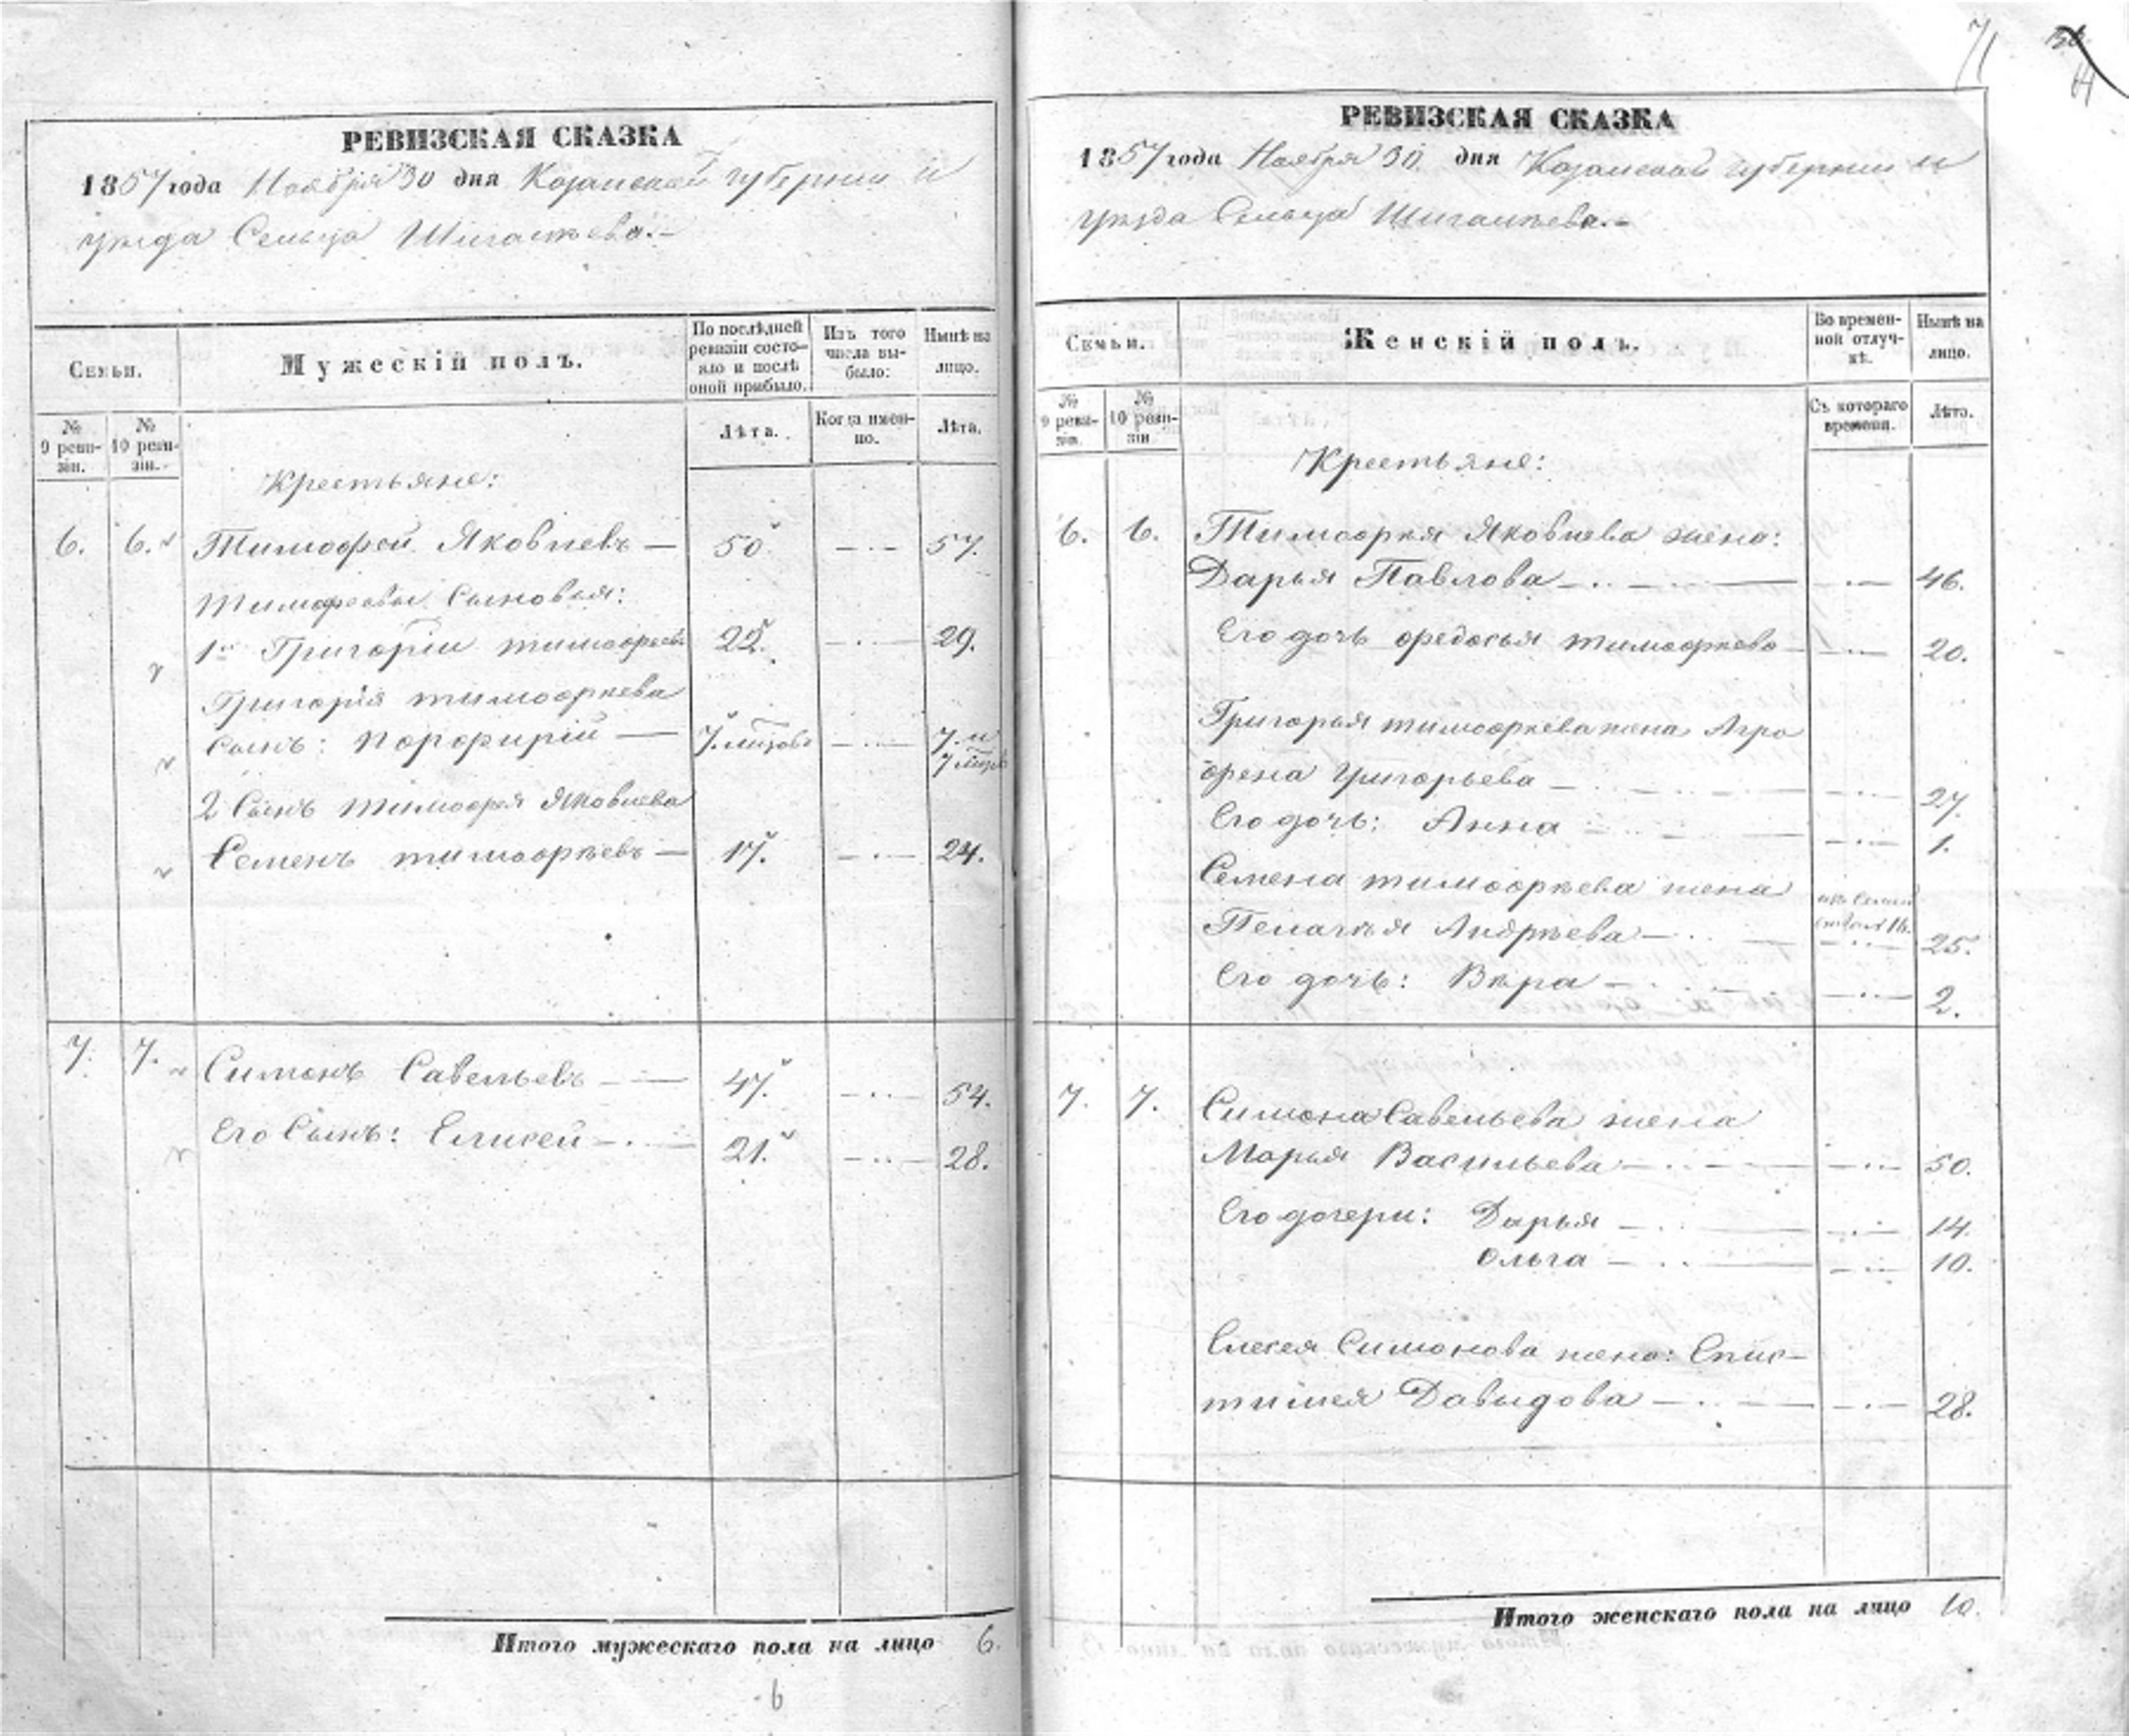 71
РЕВИЗСКАЯ СКАЗКА
1857 года Ноября 30 дня Казанской губернии и
уезда Сельца Шигалѣева.
Семьи.
Мужескій полъ.
По послѣдней ревизіи состо-
яло и послѣ
оной прибыло.
Изъ того
числа вы-
было:
Нынѣ на
лицо.
№
9 реви-
зіи.
№
10 реви-
зіи.
Лѣта.
Когда имен-
но.
Лѣта.
Крестьяне:
6. 6. Тимофей Яковлевъ — 50 57.
Тимофеевы Сыновья:
1й Григорій Тимофеевъ 22. 29.
Григорія Тимофѣева
Сынъ: Порфирій — 7. мѣсяцовъ 7. и
7 мѣсяц
2 Сынъ Тимофея Яковлева
Семенъ Тимофѣевъ — 17. 24.
7. 7. Симонъ Савельевъ 47. 54.
Его Сынъ: Елисей 21. 28.
Итого мужескаго пола на лицо 6.
6
РЕВИЗСКАЯ СКАЗКА
1857 года Ноября 30 дня Казанской губернии и
уѣзда Сельца Шигалѣева.
Семьи.
Женскій полъ.
Во времен-
ной отлуч-
кѣ.
Нынѣ на
лицо.
№
9 реви-
зіи.
№
10 реви-
зіи
Съ котораго
времени.
Лѣта.
Крестьяне:
6. 6. Тимофѣя Яковлева жена:
Дарья Павлова 46.
Его дочь Федосья Тимофѣева 20.
Григорья Тимофѣева жена Агра
фена Григорьева 27.
Его дочь: Анна 1.
Семена Тимофѣева жена
Пелагѣя Андрѣева 25.
Его дочь: Вѣра 2.
7. 7. Симона Савельева жена
Марья Васильева 50.
Его дочери: Дарья 14.
Ольга 10.
Елисея Симонова жена: Епис-
тимея Давыдова 28.
Итого женскаго пола на лицо 10.